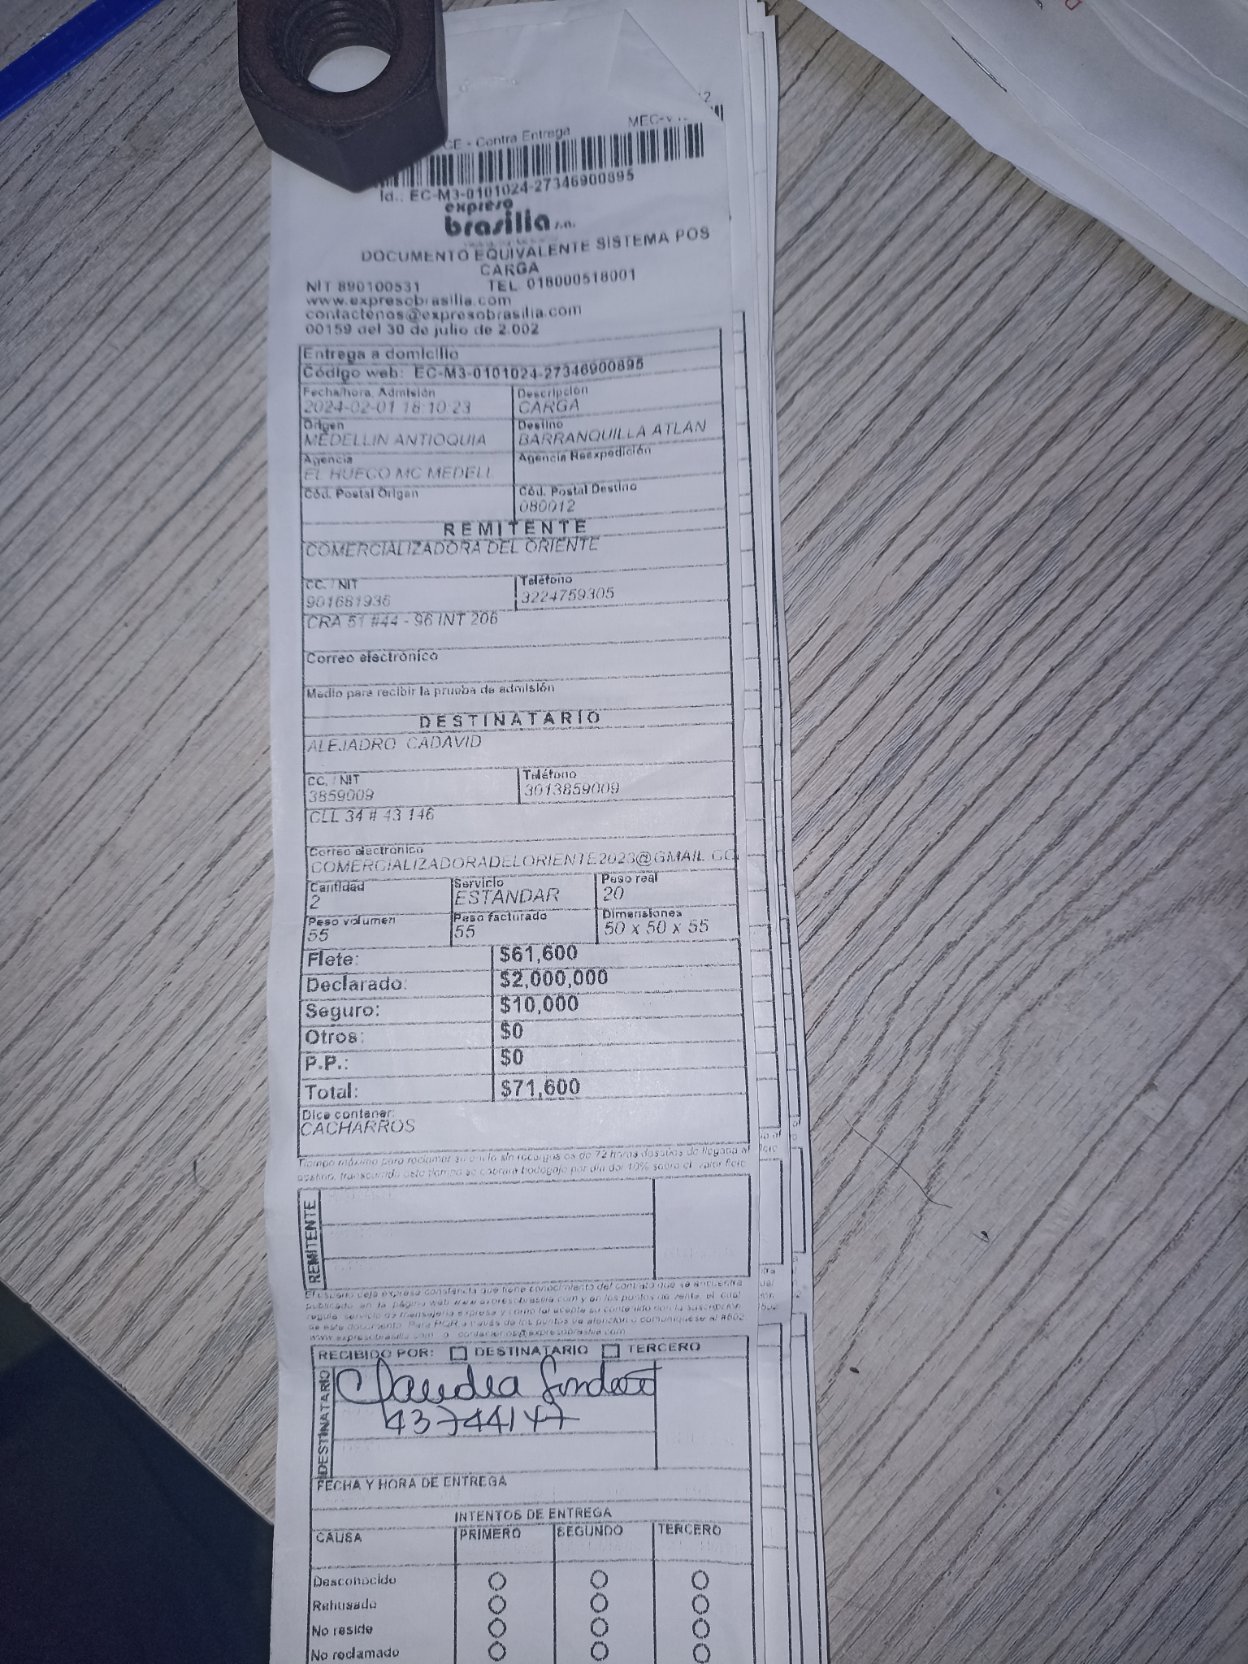 CE - Contra Entrega
Id.. EC-M3-0101024-27346900895
expreso
brasilia s.a.
DOCUMENTO EQUIVALENTE SISTEMA POS
CARGA
NIT 890100531 TEL 018000518001
www.expresobrasilia.com
contactenos@expresobrasilia.com
00159 del 30 de julio de 2.002
Entrega a domicilio
Código web: EC-M3-0101024-27346900895
Fecha/hora. Admisión Descripción
2024-02-01 18:10:23 CARGA
Origen Destino
MEDELLIN ANTIOQUIA BARRANQUILLA ATLAN
Agencia Agencia Reexpedición
EL HUECO MC MEDELL
Cód. Postal Origen Cód. Postal Destino
080012
REMITENTE
COMERCIALIZADORA DEL ORIENTE
CC. / NIT Teléfono
901681936 3224759305
CRA 51 #44 - 96 INT 206
Correo electrónico
Medio para recibir la prueba de admisión
DESTINATARIO
ALEJADRO CADAVID
CC. / NIT Teléfono
3859009 3013859009
CLL 34 # 43 146
Correo electrónico
COMERCIALIZADORADELORIENTE2023@GMAIL.CO
Cantidad Servicio Peso real
2 ESTANDAR 20
Peso volumen Peso facturado Dimensiones
55 55 50 x 50 x 55
Flete: $61,600
Declarado: $2,000,000
Seguro: $10,000
Otros: $0
P.P.: $0
Total: $71,600
Dice contener:
CACHARROS
Tiempo máximo para reclamar su envío sin recargos es de 72 horas después de llegada al
destino, transcurrido este tiempo se cobrará bodegaje por día del 10% sobre el valor flete
REMITENTE
El usuario deja expresa constancia que tiene conocimiento del contrato que se encuentra
publicado en la página web www.expresobrasilia.com y en los puntos de venta, el cual
regula servicio de mensajería expresa y como tal acepta su contenido con la suscripción
de este documento. Para PQR a través de los puntos de atención o comuníquese al
www.expresobrasilia.com o contactenos@expresobrasilia.com
RECIBIDO POR: DESTINATARIO TERCERO
DESTINATARIO
Claudia
43744147
FECHA Y HORA DE ENTREGA
INTENTOS DE ENTREGA
CAUSA PRIMERO SEGUNDO TERCERO
Desconocido
Rehusado
No reside
No reclamado